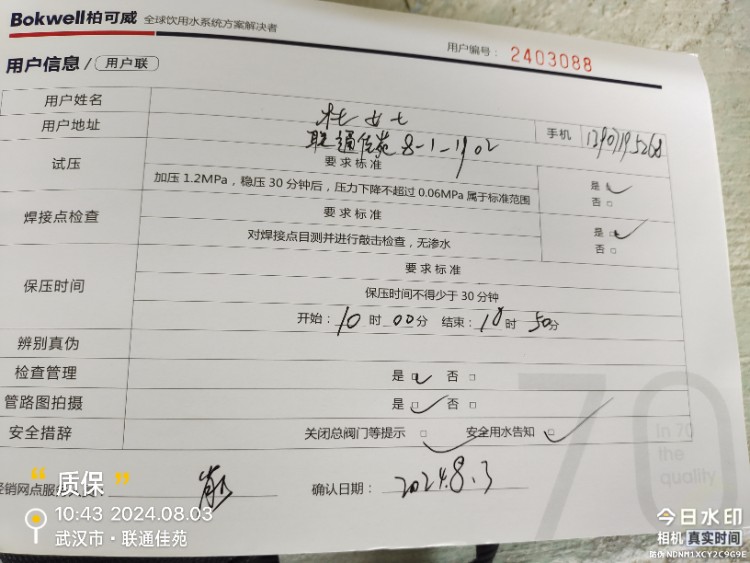 Bokwell柏可威 全球饮用水系统方案解决者
用户编号：2403088
用户信息/用户联
用户姓名 杜女士
用户地址 联通佳苑8-1-1902 手机
试压 要求标准 是
加压1.2MPa，稳压30分钟后，压力下降不超过0.06MPa属于标准范围 否
焊接点检查 要求标准 是
对焊接点目测并进行敲击检查，无渗水 否
保压时间 要求标准
保压时间不得少于30分钟
开始：10时00分 结束：10时50分
辨别真伪
检查管理 是 否
管路图拍摄 是 否
安全措辞 关闭总阀门等提示 安全用水告知
70
In 70
the
quality
经销网点服 确认日期：2024.8.3
“质保”
10:43 2024.08.03
武汉市·联通佳苑
今日水印
相机 真实时间
防伪NDNM1XCY2C9G9E